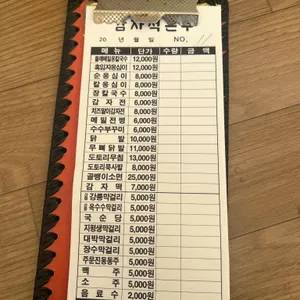 감자먹는날
20 년 월 일 NO.
메 뉴 단가 수량 금 액
들깨메밀옹칼국수 12,000원
흑임자옹심이 12,000원
순옹심이 8,000원
칼옹심이 8,000원
장칼국수 8,000원
감 자 전 6,000원
치즈말이감자전 8,000원
메밀전병 6,000원
수수부꾸미 6,000원
닭 발 10,000원
무뼈닭발 11,000원
도토리무침 13,000원
도토리묵사발 8,000원
골뱅이소면 25,000원
감 자 떡 7,000원
강릉막걸리 5,000원
옥수수막걸리 5,000원
국 순 당 5,000원
지평생막걸리 5,000원
대박막걸리 5,000원
장수막걸리 5,000원
주문진동동주 5,000원
맥 주 5,000원
소 주 5,000원
음 료 수 2,000원